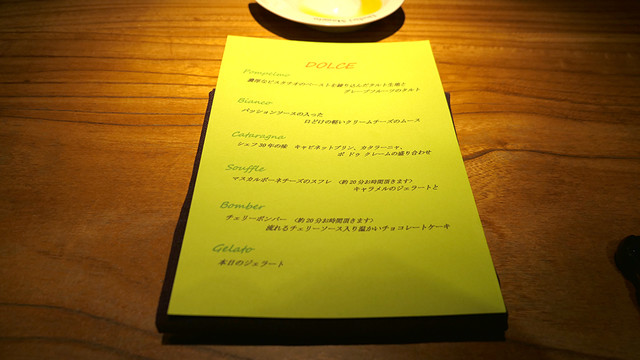 DOLCE
Pompelmo
濃厚なピスタチオのペーストを練り込んだタルト生地と
グレープフルーツのタルト
Bianco
パッションソースの入った
口どけの軽いクリームチーズのムース
Cataragna
シェフ20年の味 キャビネットプリン、カタラーニャ、
ポ ドゥ クレームの盛り合わせ
Souffle
マスカルポーネチーズのスフレ (約20分お時間頂きます)
キャラメルのジェラートと
Bomber
チェリーボンバー (約20分お時間頂きます)
流れるチェリーソース入り温かいチョコレートケーキ
Gelato
本日のジェラート